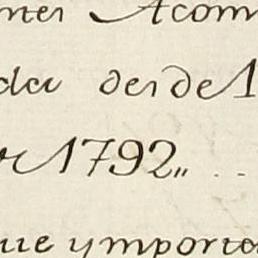 nes Acom
da desde 1
r 1792,, . .
ue ymporta